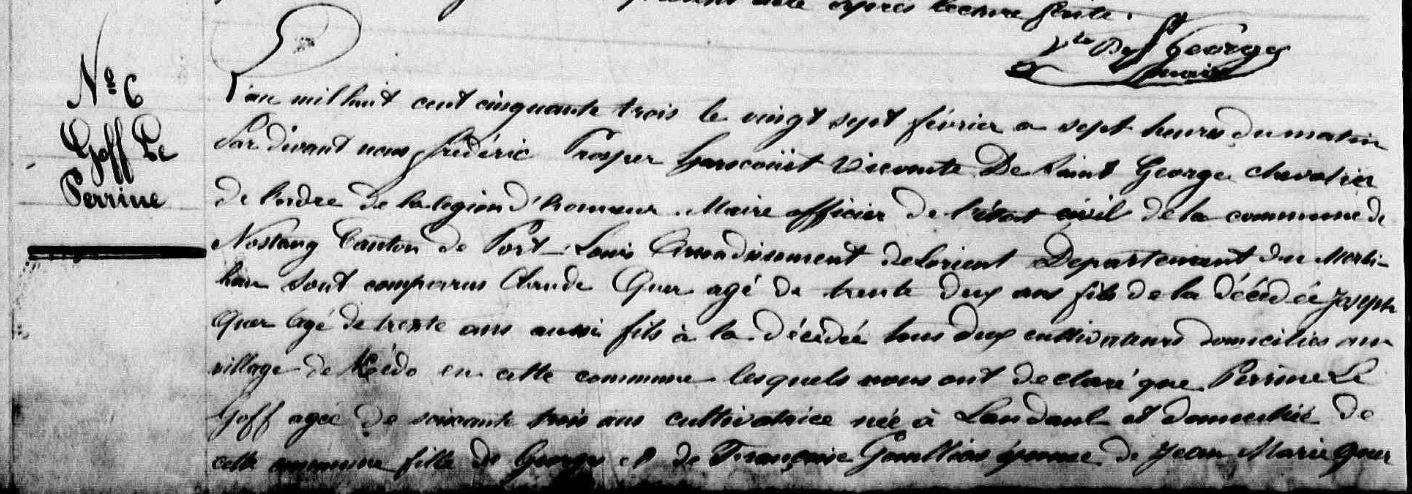 présent acte après lecture faite.
Vte De St George
maire
No 6
Goff Le
Perrine
L'an mil huit cent cinquante trois le vingt sept février a sept heures du matin
Par devant nous frédéric Prosper Vicomte De Saint George chevalier
de l'ordre de la legion d'honneur Maire officier de l'état civil de la commune de
Nostang Canton de Port-Louis Arrondissement de Lorient Departement du Morbi-
han sont comparus Claude Quer agé de trente deux ans fils de la décédée Joseph
Quer agé de trente ans aussi fils à la décédée tous deux cultivateurs domiciliés au
village de en cette commune lesquels nous ont declaré que Perrine Le
Goff agée de soixante trois ans cultivatrice née à Landaul et domiciliée de
cette commune fille de George et de Françoise épouse de Jean Marie Quer